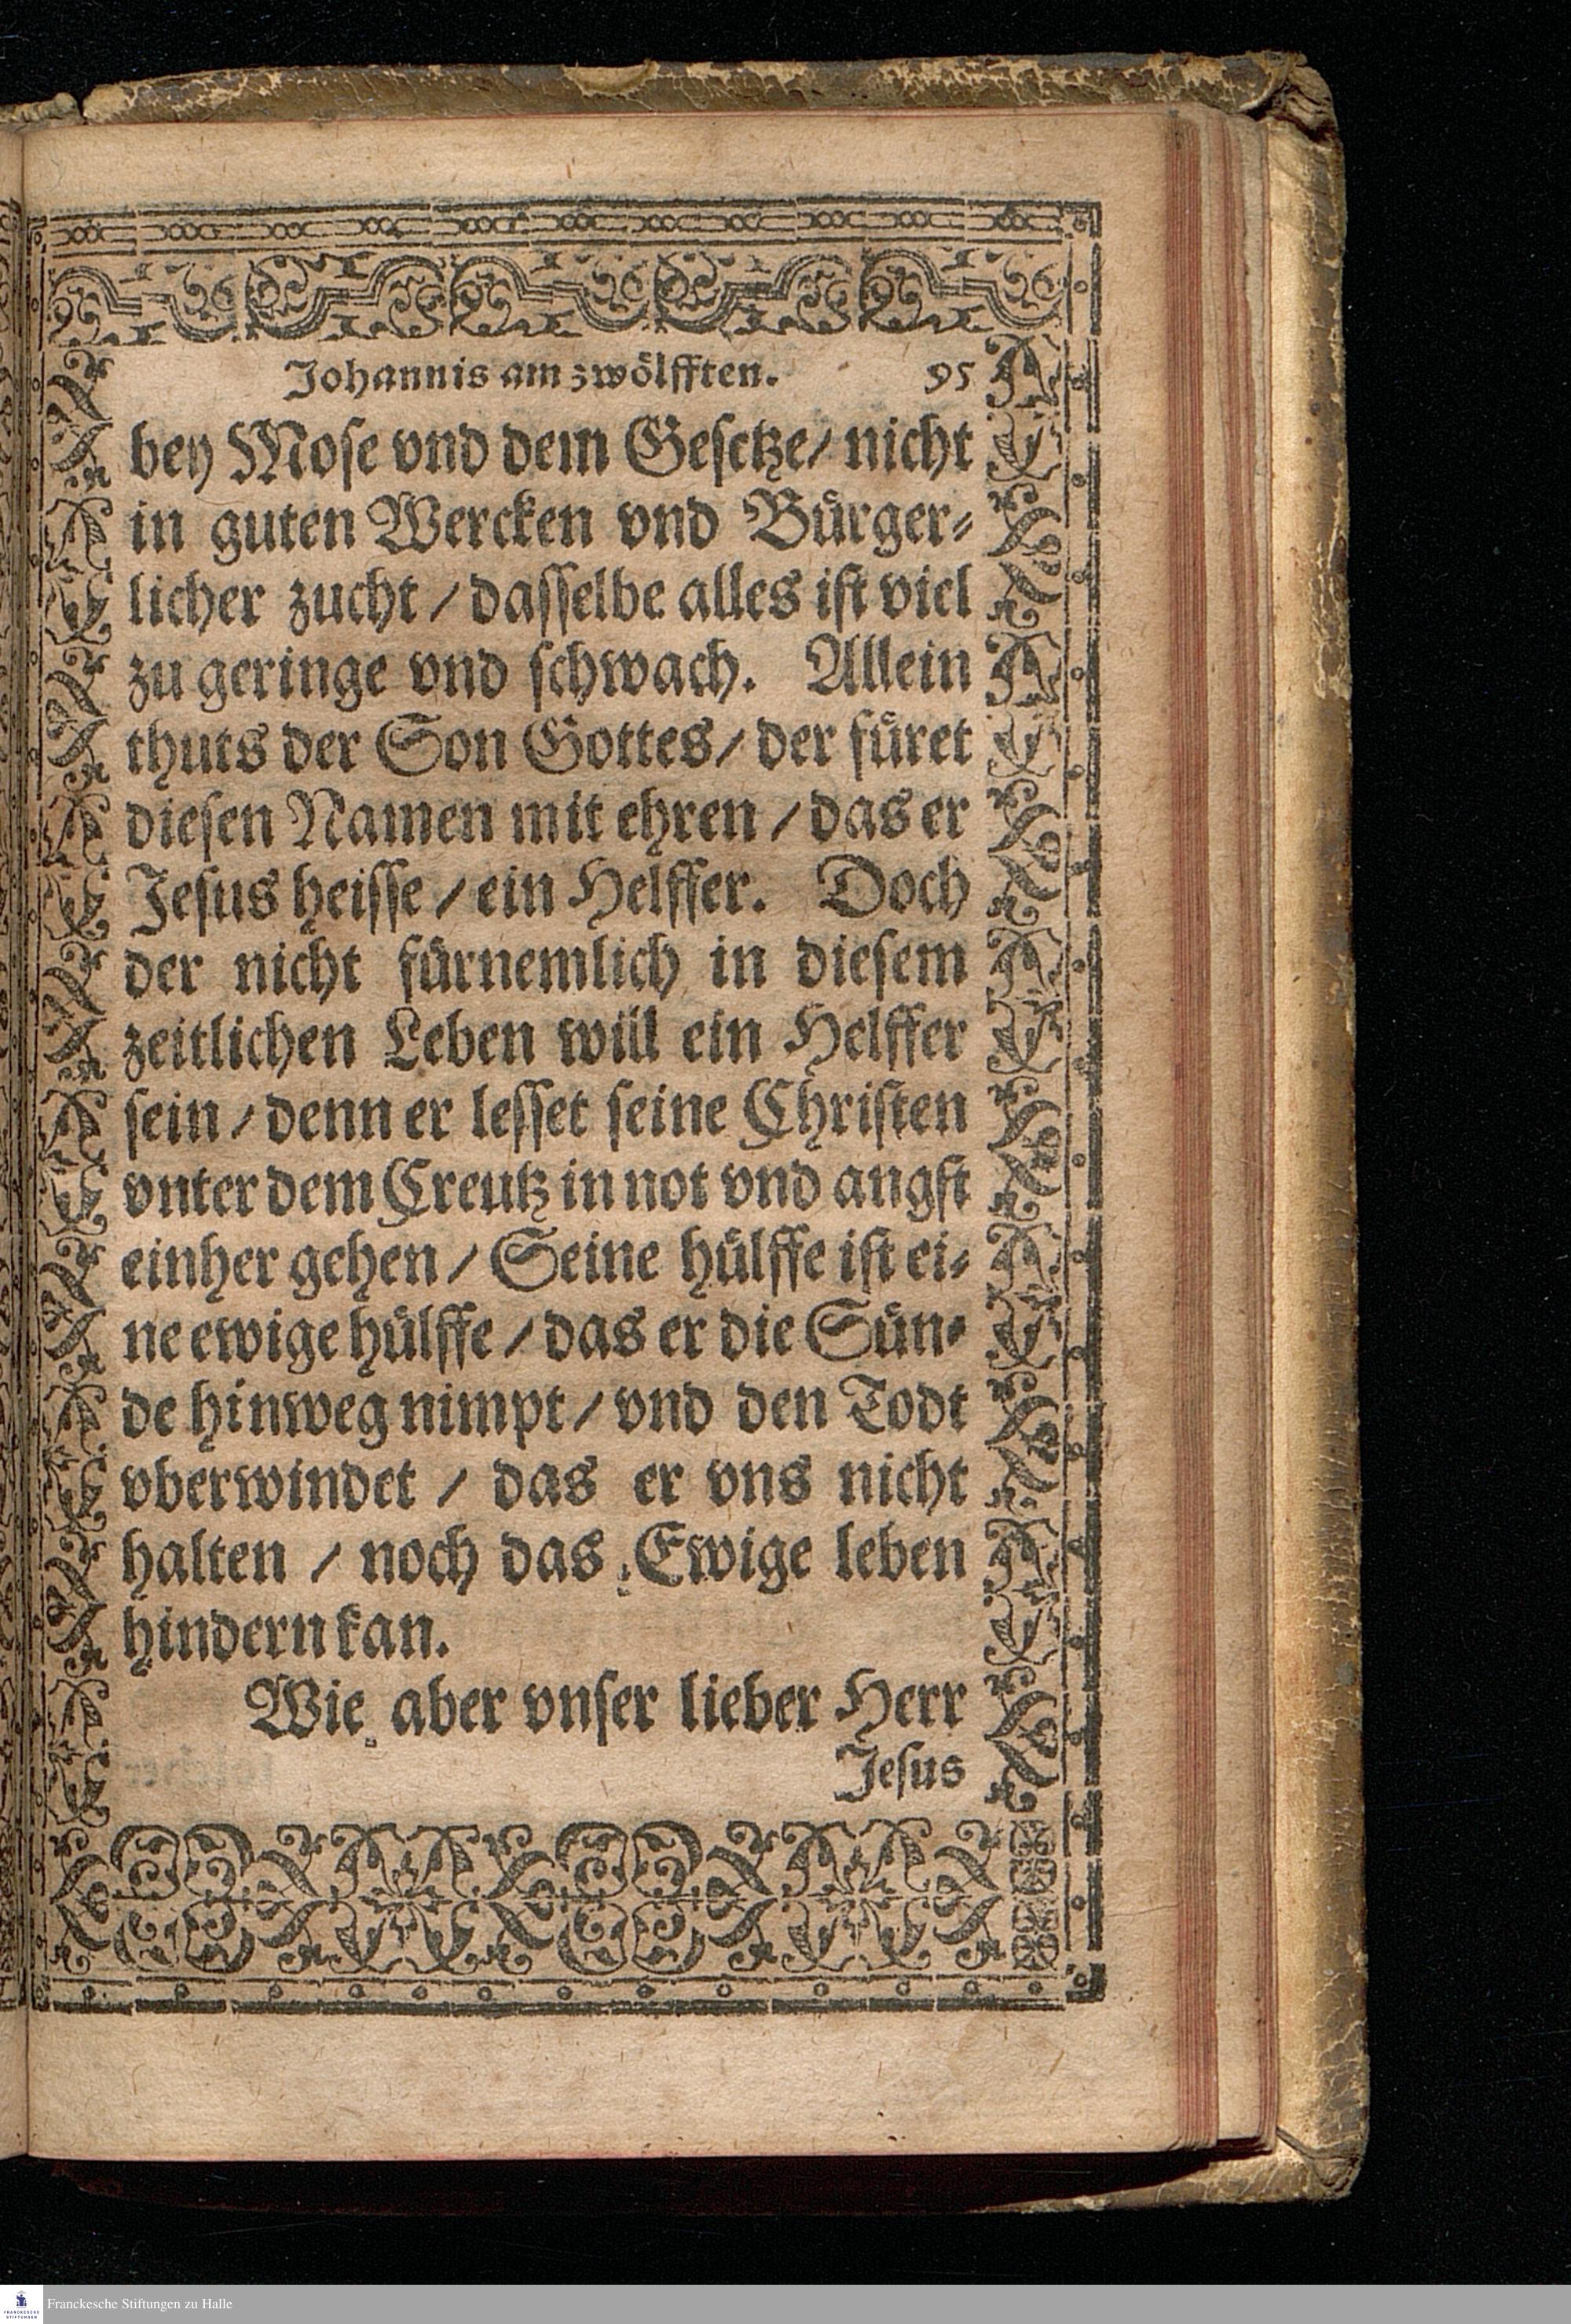 Johannis am zwölfften. 95
bey Mose vnd dem Gesetze/ nicht
in guten Wercken vnd Bürger⸗
licher zucht / dasselbe alles ist viel
zu geringe vnd schwach. Allein
thuts der Son Gottes/ der füret
diesen Namen mit ehren / das er
Jesus heisse / ein Helffer. Doch
der nicht fürnemlich in diesem
zeitlichen Leben will ein Helffer
sein / denn er lesset seine Christen
vnter dem Creutz in not vnd angst
einher gehen / Seine hülffe ist ei⸗
ne ewige hülffe / das er die Sün⸗
de hinweg nimpt / vnd den Todt
vberwindet / das er vns nicht
halten / noch das Ewige leben
hindern kan.
Wie aber vnser lieber Herr
Jesus
FRANCKESCHE STIFTUNGEN
Franckesche Stiftungen zu Halle